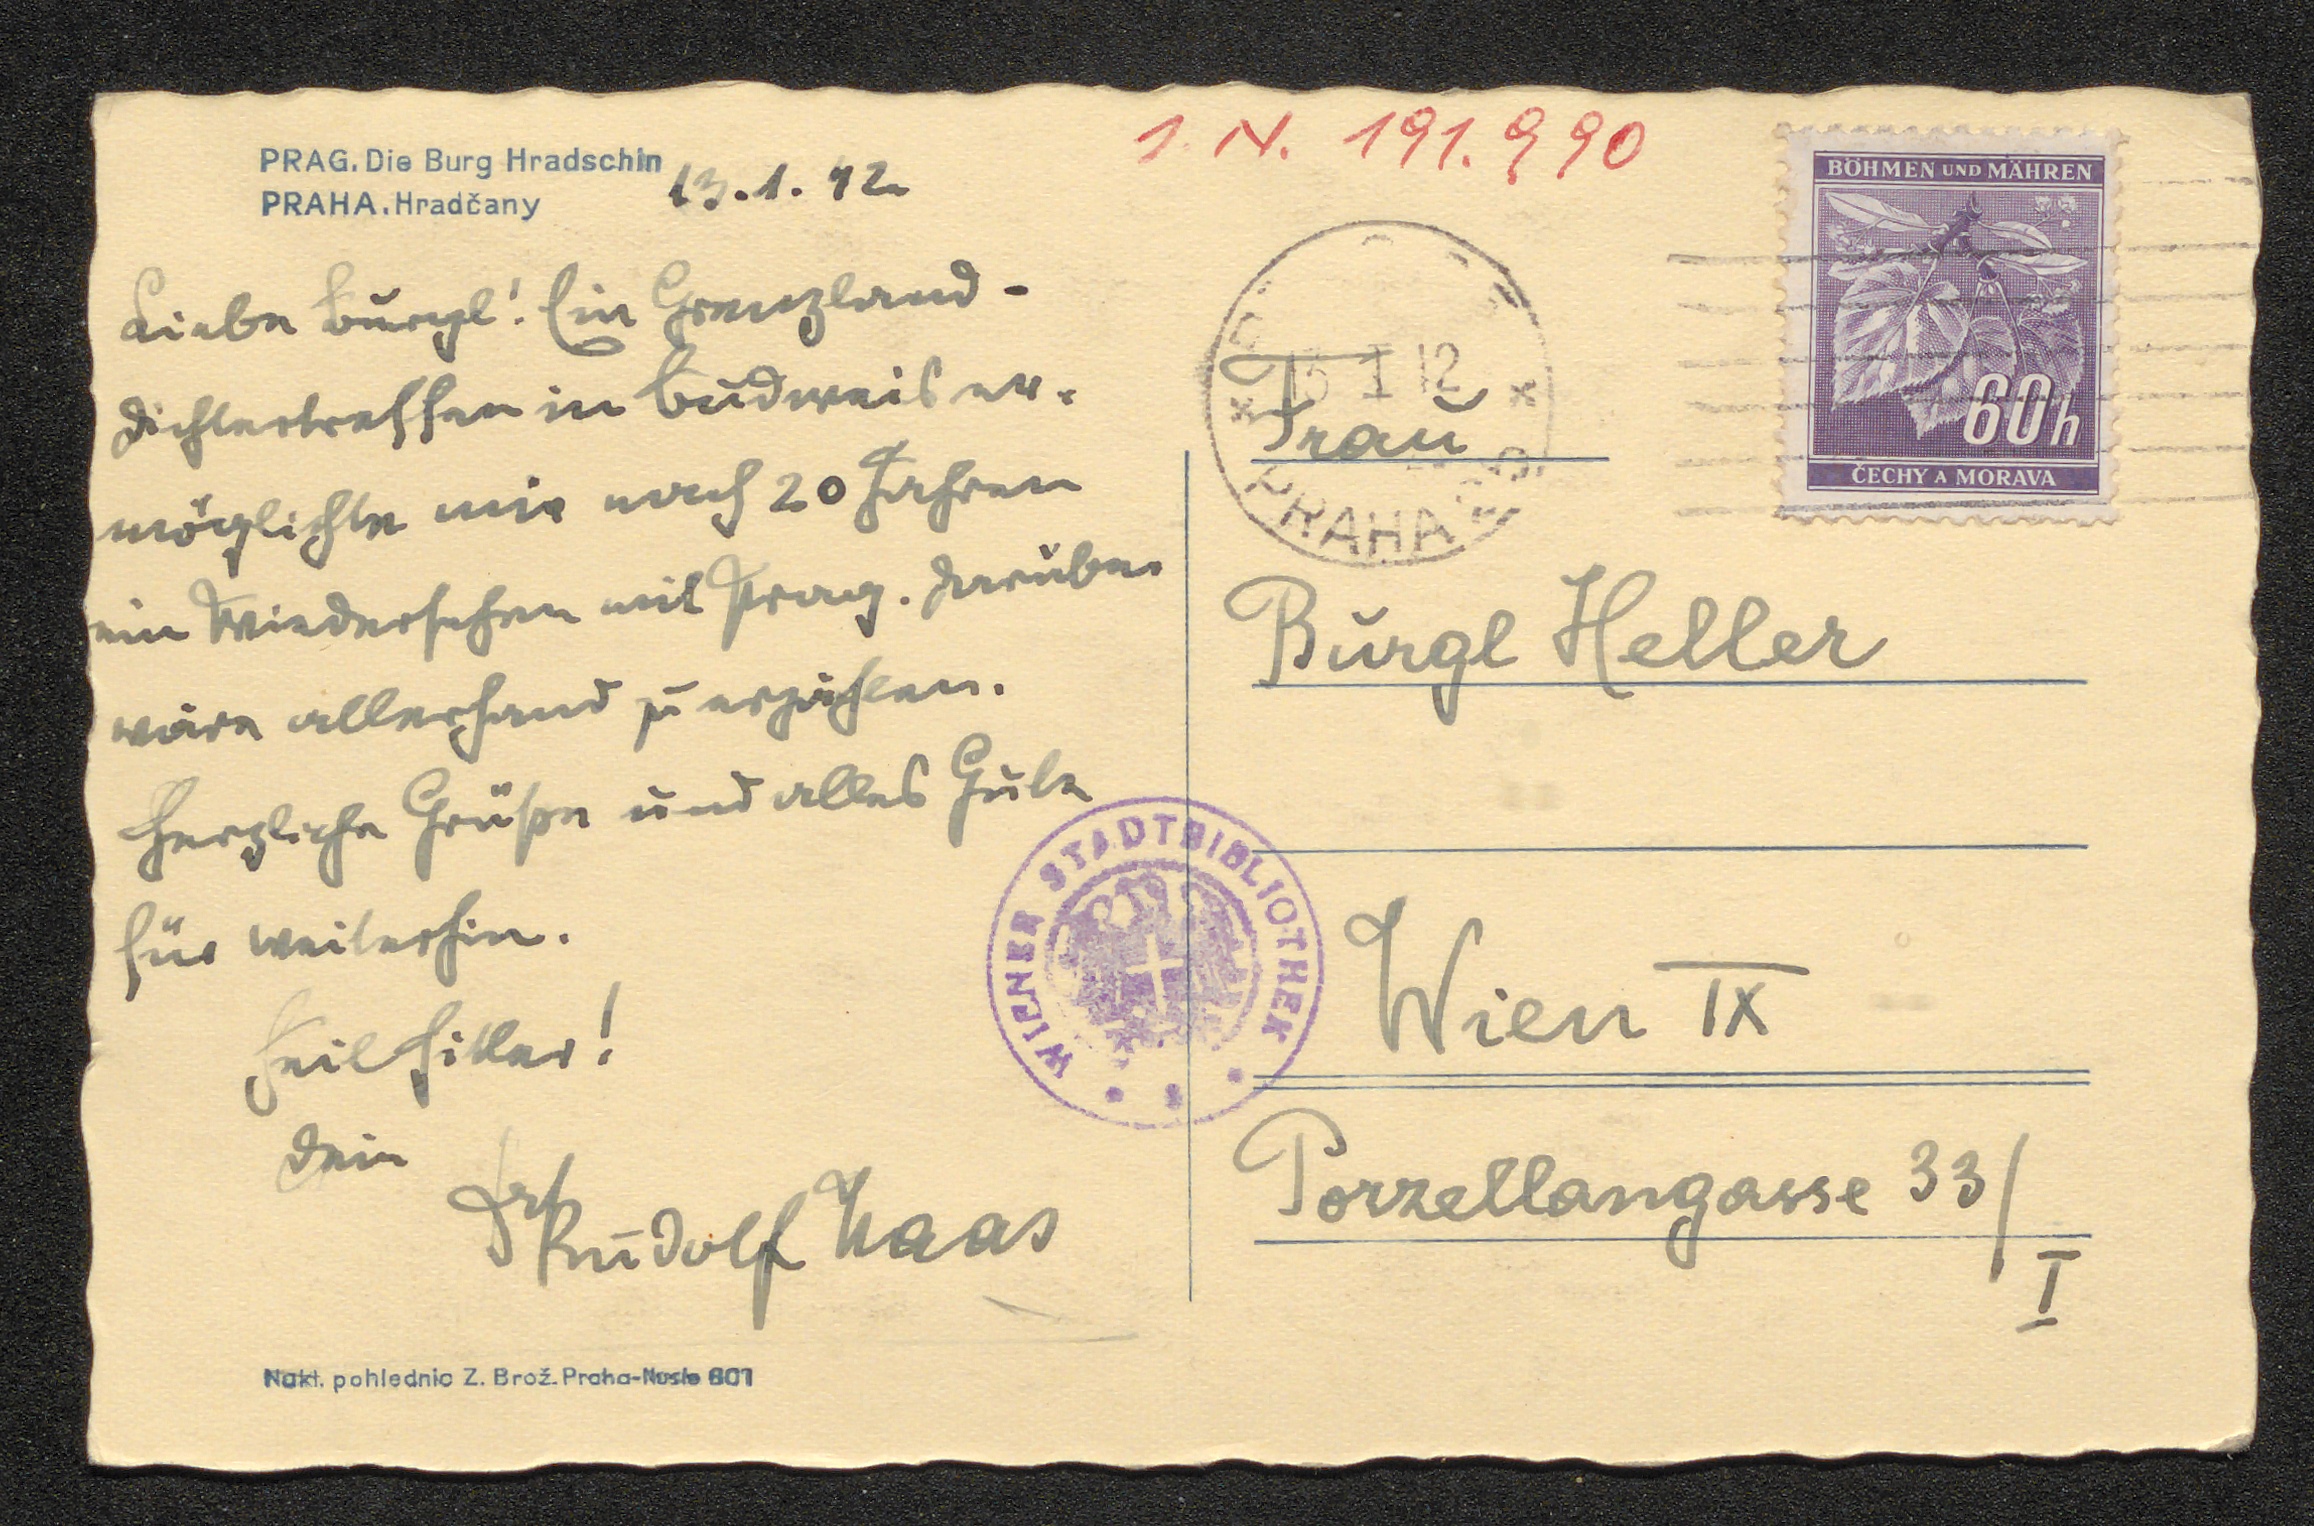 PRAG. Die Burg Hradschin
PRAHA. Hradčany
13.1.42
I. N. 191.990
BÖHMEN UND MÄHREN
60h
ČECHY A MORAVA
Liebe Burgl! Ein Grenzland-
dichtertreffen in Budweis er-
möglichte mir nach 20 Jahren
ein Wiedersehen mit Prag. Darüber
wäre allerhand zu erzählen.
Herzliche Grüße und alles Gute
für weiterhin.
Heil Hitler!
Dein
Dr Rudolf Haas
Nakl. pohlednic Z. Brož. Praha-Nusle 801
I 42
PRAHA
Frau
Burgl Heller
Wien IX
Porzellangasse 33/
I
WIENER STADTBIBLIOTHEK